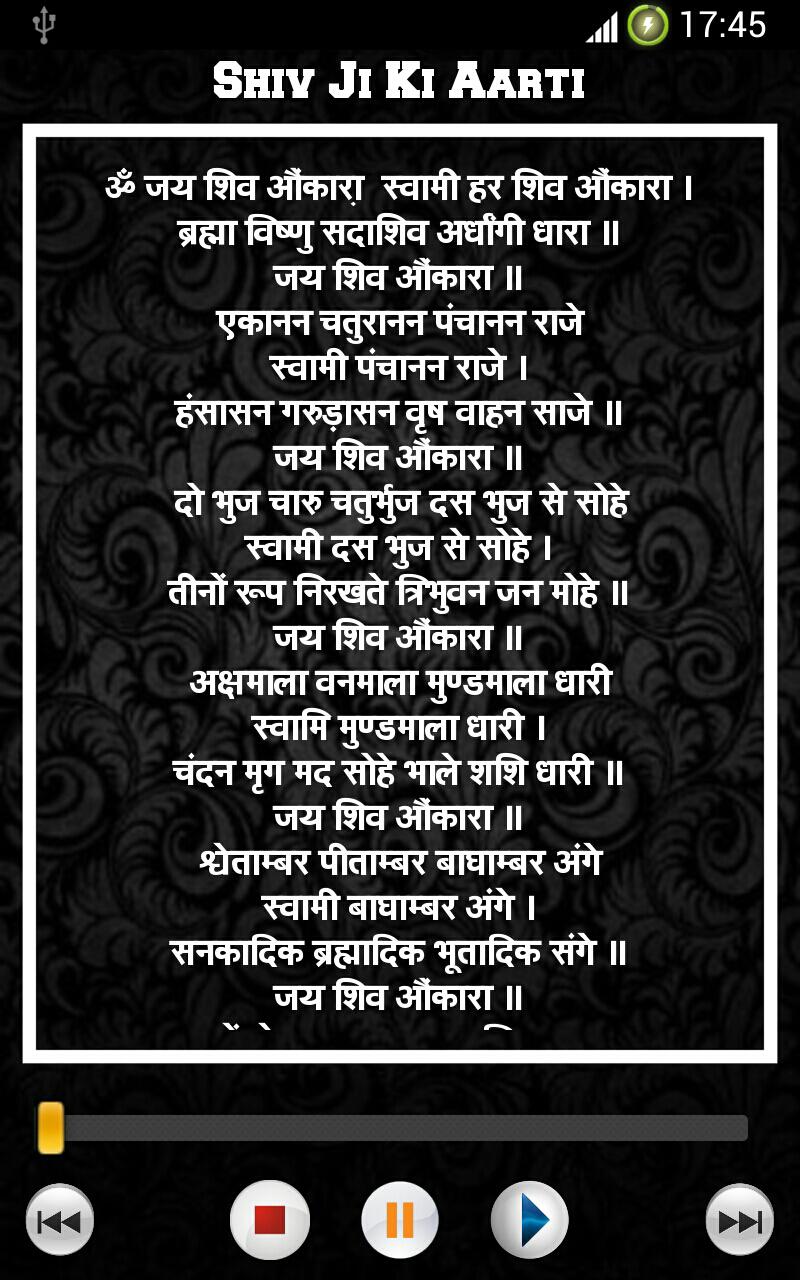 17:45
Shiv Ji Ki Aarti
ॐ जय शिव औंकारा़ स्वामी हर शिव औंकारा ।
ब्रह्मा विष्णु सदाशिव अर्धांगी धारा ॥
जय शिव औंकारा ॥
एकानन चतुरानन पंचानन राजे
स्वामी पंचानन राजे ।
हंसासन गरुड़ासन वृष वाहन साजे ॥
जय शिव औंकारा ॥
दो भुज चारु चतुर्भुज दस भुज से सोहे
स्वामी दस भुज से सोहे ।
तीनों रूप निरखते त्रिभुवन जन मोहे ॥
जय शिव औंकारा ॥
अक्षमाला वनमाला मुण्डमाला धारी
स्वामि मुण्डमाला धारी ।
चंदन मृग मद सोहे भाले शशि धारी ॥
जय शिव औंकारा ॥
श्वेताम्बर पीताम्बर बाघाम्बर अंगे
स्वामी बाघाम्बर अंगे ।
सनकादिक ब्रह्मादिक भूतादिक संगे ॥
जय शिव औंकारा ॥